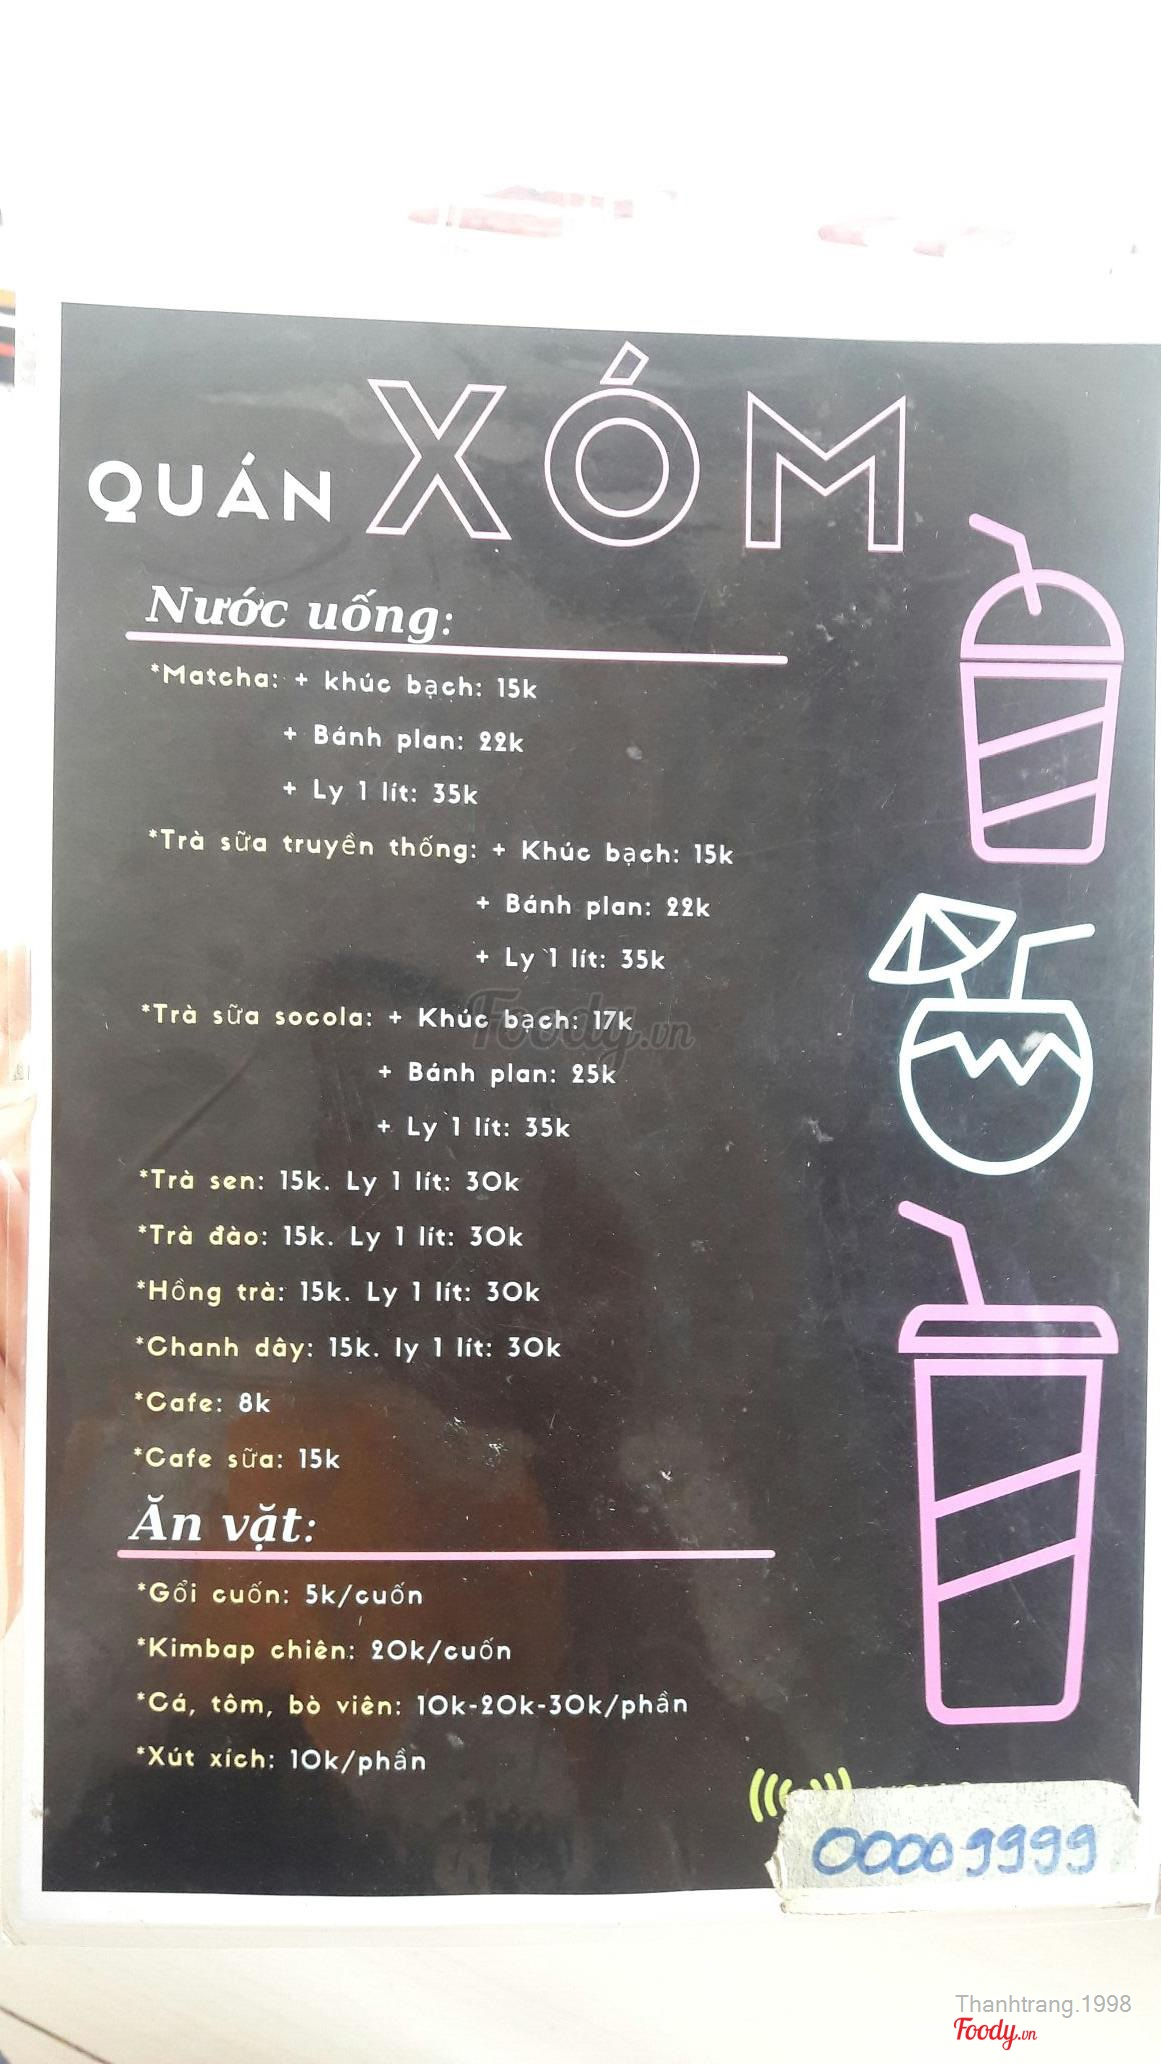 QUÁN XÓM
Nước uống:
*Matcha: + khúc bạch: 15k
+ Bánh plan: 22k
+ Ly 1 lít: 35k
*Trà sữa truyền thống: + Khúc bạch: 15k
+ Bánh plan: 22k
+ Ly 1 lít: 35k
*Trà sữa socola: + Khúc bạch: 17k
Foody.vn
+ Bánh plan: 25k
+ Ly 1 lít: 35k
*Trà sen: 15k. Ly 1 lít: 30k
*Trà đào: 15k. Ly 1 lít: 30k
*Hồng trà: 15k. Ly 1 lít: 30k
*Chanh dây: 15k. ly 1 lít: 30k
*Cafe: 8k
*Cafe sữa: 15k
Ăn vặt:
*Gổi cuốn: 5k/cuốn
*Kimbap chiên: 20k/cuốn
*Cá, tôm, bò viên: 10k-20k-30k/phần
*Xút xích: 10k/phần
00009999
Thanhtrang.1998
Foody.vn